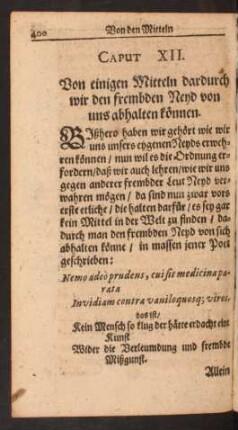 400
Von den Mitteln
CAPUT XII.
Von einigen Mitteln dardurch
wir den frembden Neyd von
uns abhalten können.
BIßhero haben wir gehört wie wir
uns unsers eygenen Neyds erweh-
ren können / nun wil es die Ordnung er-
fordern / daß wir auch lehren / wie wir uns
gegen anderer frembder Leut Neyd ver-
wahren mögen / da sind nun zwar vors
erste etliche / die halten darfür / es sey gar
kein Mittel in der Welt zu finden / da-
durch man den frembden Neyd von sich
abhalten könne / in massen jener Poet
geschrieben:
Nemo adeò prudens, cui sit medicina pa-
rata
Invidiam contra vaniloquosq; viros.
das ist /
Kein Mensch so klug der hätte erdacht eine
Kunst
Wider die Verleumdung und frembde
Mißgunst.
Allein